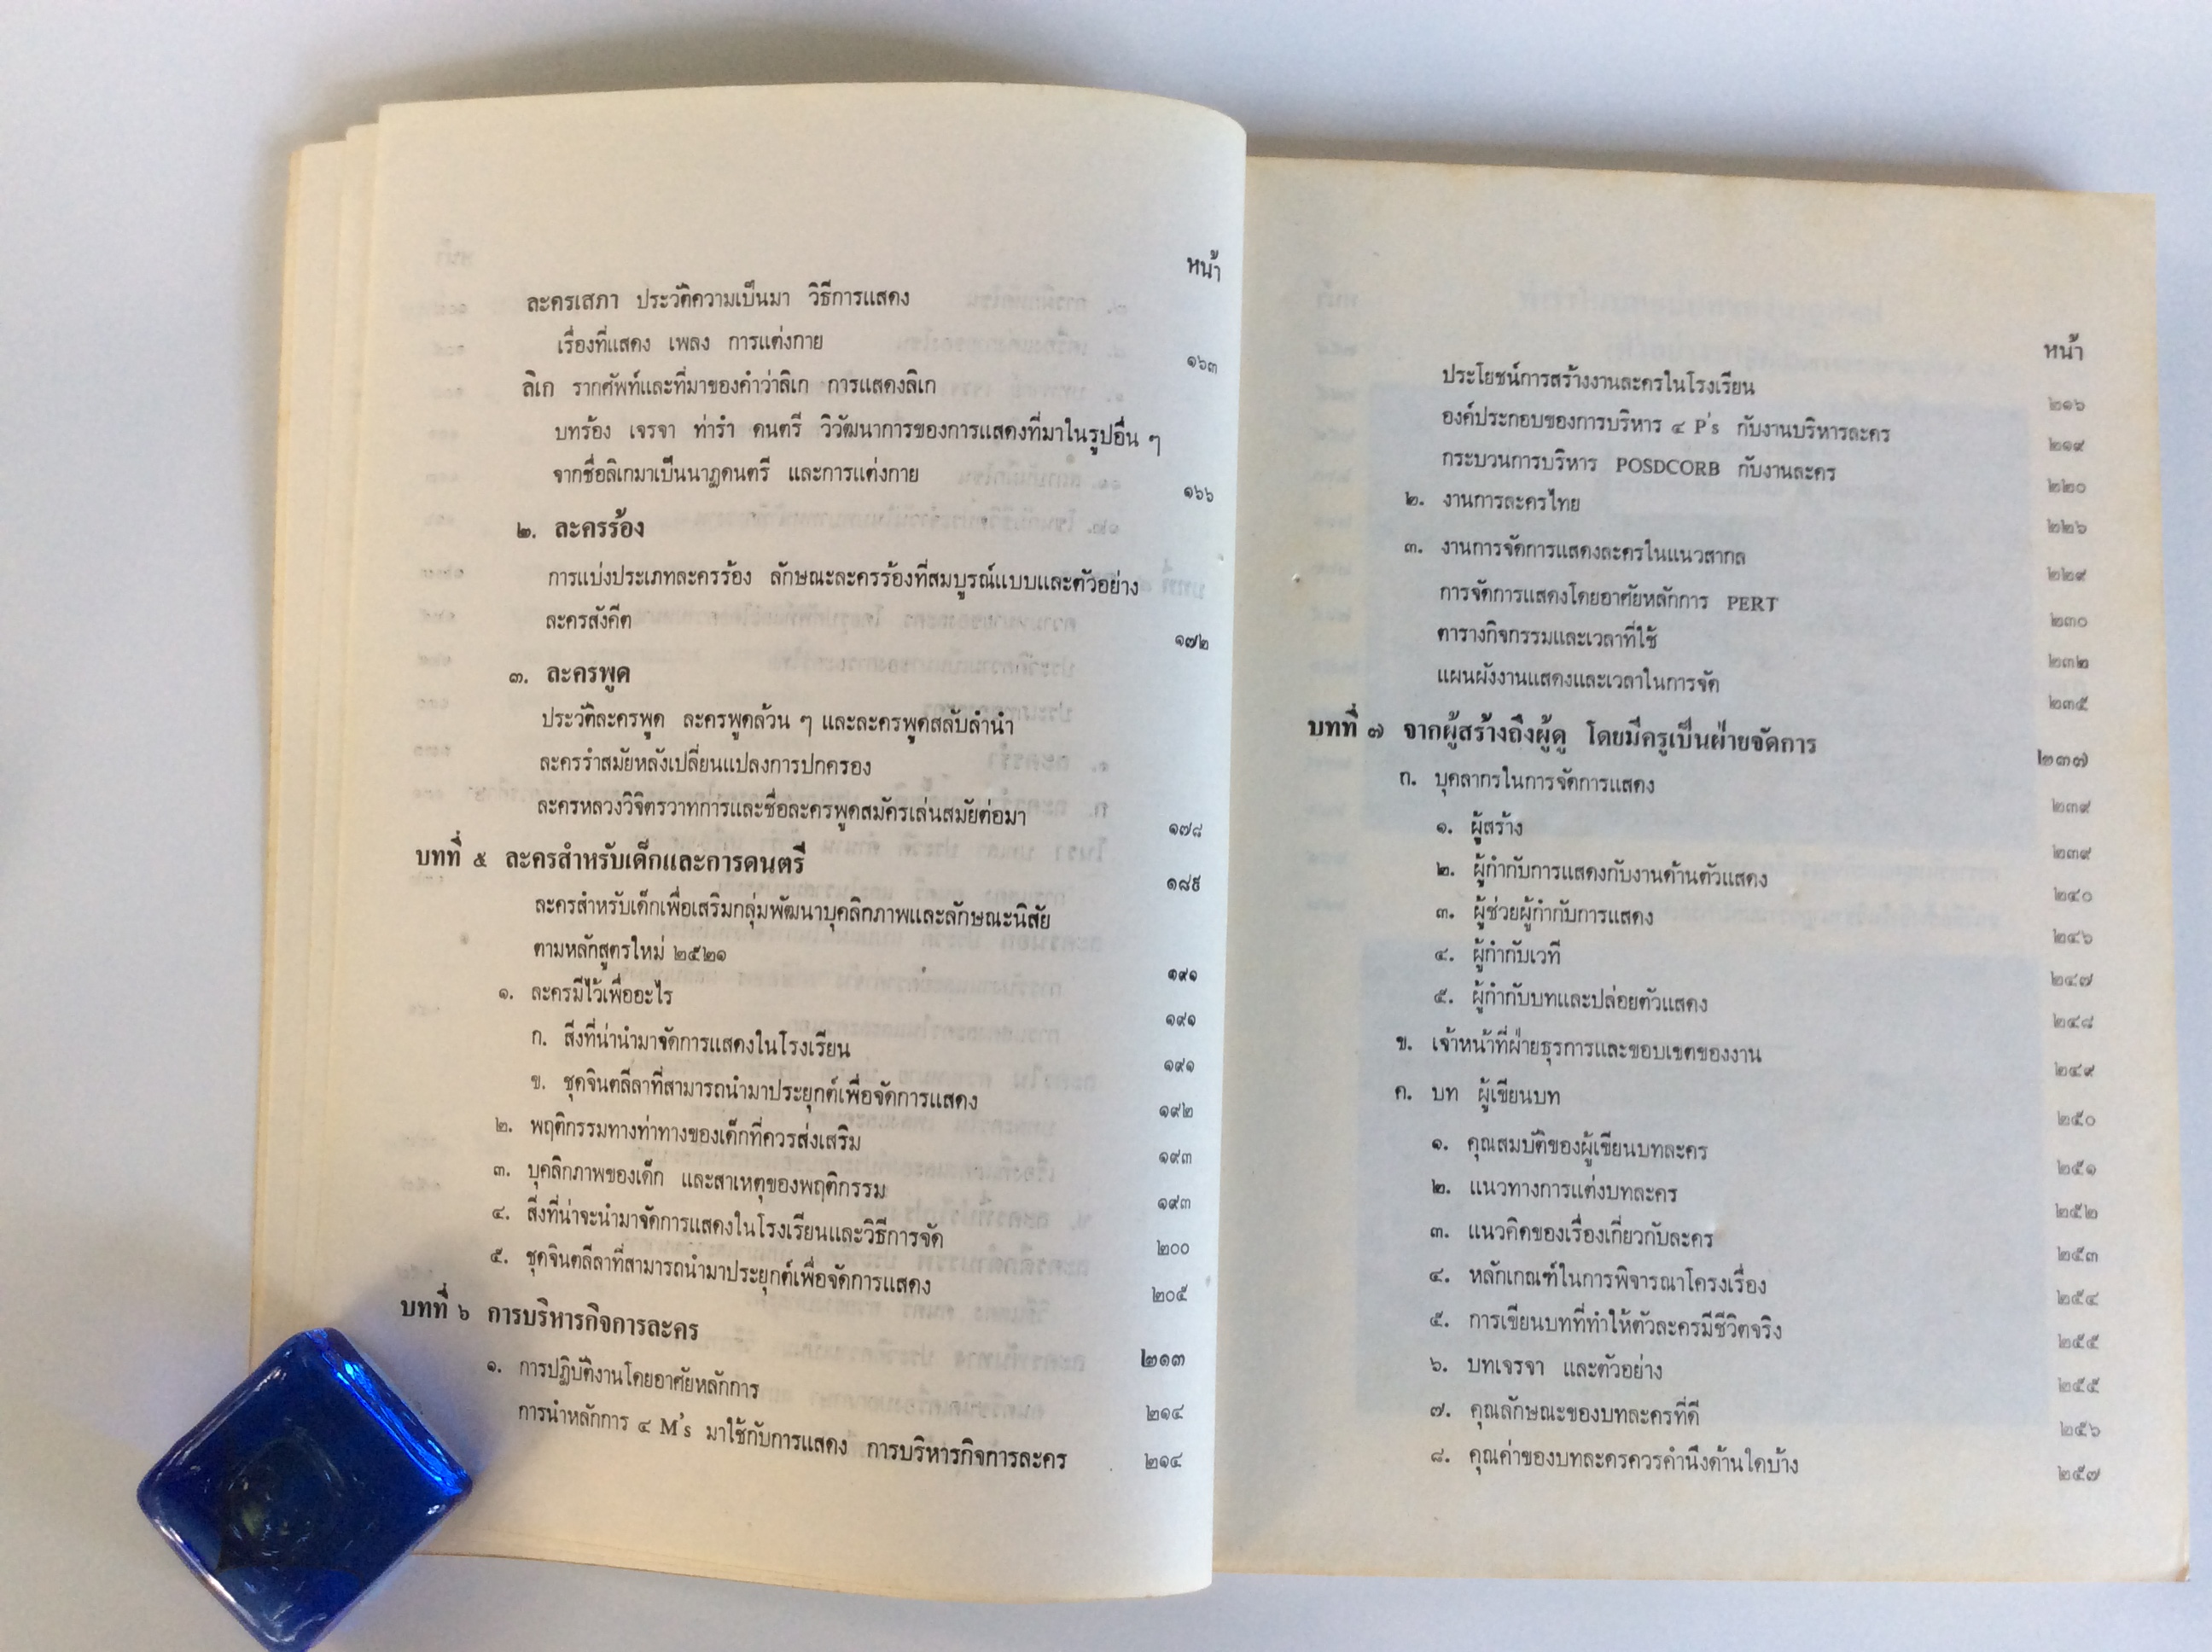 หน้า
ละครเสภา ประวัติความเป็นมา วิธีการแสดง
เรื่องที่แสดง เพลง การแต่งกาย ๑๖๓
ลิเก รากศัพท์และที่มาของคำว่าลิเก การแสดงลิเก
บทร้อง เจรจา ท่ารำ ดนตรี วิวัฒนาการของการแสดงที่มาในรูปอื่น ๆ
จากชื่อลิเกมาเป็นนาฏดนตรี และการแต่งกาย ๑๖๖
๒. ละครร้อง
การแบ่งประเภทละครร้อง ลักษณะละครร้องที่สมบูรณ์แบบและตัวอย่าง
ละครสังคีต ๑๗๒
๓. ละครพูด
ประวัติละครพูด ละครพูดล้วน ๆ และละครพูดสลับลำนำ
ละครรำสมัยหลังเปลี่ยนแปลงการปกครอง
ละครหลวงวิจิตรวาทการและชื่อละครพูดสมัครเล่นสมัยต่อมา ๑๗๘
บทที่ ๕ ละครสำหรับเด็กและการดนตรี ๑๘๙
ละครสำหรับเด็กเพื่อเสริมกลุ่มพัฒนาบุคลิกภาพและลักษณะนิสัย
ตามหลักสูตรใหม่ ๒๕๒๑ ๑๙๑
๑. ละครมีไว้เพื่ออะไร ๑๙๑
ก. สิ่งที่น่านำมาจัดการแสดงในโรงเรียน ๑๙๑
ข. ชุดจินตลีลาที่สามารถนำมาประยุกต์เพื่อจัดการแสดง ๑๙๒
๒. พฤติกรรมทางท่าทางของเด็กที่ควรส่งเสริม ๑๙๓
๓. บุคลิกภาพของเด็ก และสาเหตุของพฤติกรรม ๑๙๓
๔. สิ่งที่น่าจะนำมาจัดการแสดงในโรงเรียนและวิธีการจัด ๒๐๐
๕. ชุดจินตลีลาที่สามารถนำมาประยุกต์เพื่อจัดการแสดง ๒๐๕
บทที่ ๖ การบริหารกิจการละคร ๒๑๓
๑. การปฏิบัติงานโดยอาศัยหลักการ ๒๑๔
การนำหลักการ ๔ M's มาใช้กับการแสดง การบริหารกิจการละคร ๒๑๔
หน้า
ประโยชน์การสร้างงานละครในโรงเรียน ๒๑๖
องค์ประกอบของการบริหาร ๔ P's กับงานบริหารละคร ๒๑๙
กระบวนการบริหาร POSDCORB กับงานละคร ๒๒๐
๒. งานการละครไทย ๒๒๖
๓. งานการจัดการแสดงละครในแนวสากล ๒๒๙
การจัดการแสดงโดยอาศัยหลักการ PERT ๒๓๐
ตารางกิจกรรมและเวลาที่ใช้ ๒๓๒
แผนผังงานแสดงและเวลาในการจัด ๒๓๕
บทที่ ๗ จากผู้สร้างถึงผู้ดู โดยมีครูเป็นฝ่ายจัดการ ๒๓๗
ก. บุคลากรในการจัดการแสดง ๒๓๙
๑. ผู้สร้าง ๒๓๙
๒. ผู้กำกับการแสดงกับงานด้านตัวแสดง ๒๔๐
๓. ผู้ช่วยผู้กำกับการแสดง ๒๔๖
๔. ผู้กำกับเวที ๒๔๗
๕. ผู้กำกับบทและปล่อยตัวแสดง ๒๔๘
ข. เจ้าหน้าที่ฝ่ายธุรการและขอบเขตของงาน ๒๔๙
ค. บท ผู้เขียนบท ๒๕๐
๑. คุณสมบัติของผู้เขียนบทละคร ๒๕๑
๒. แนวทางการแต่งบทละคร ๒๕๒
๓. แนวคิดของเรื่องเกี่ยวกับละคร ๒๕๓
๔. หลักเกณฑ์ในการพิจารณาโครงเรื่อง ๒๕๔
๕. การเขียนบทที่ทำให้ตัวละครมีชีวิตจริง ๒๕๕
๖. บทเจรจา และตัวอย่าง ๒๕๕
๗. คุณลักษณะของบทละครที่ดี ๒๕๖
๘. คุณค่าของบทละครควรคำนึงด้านใดบ้าง ๒๕๗